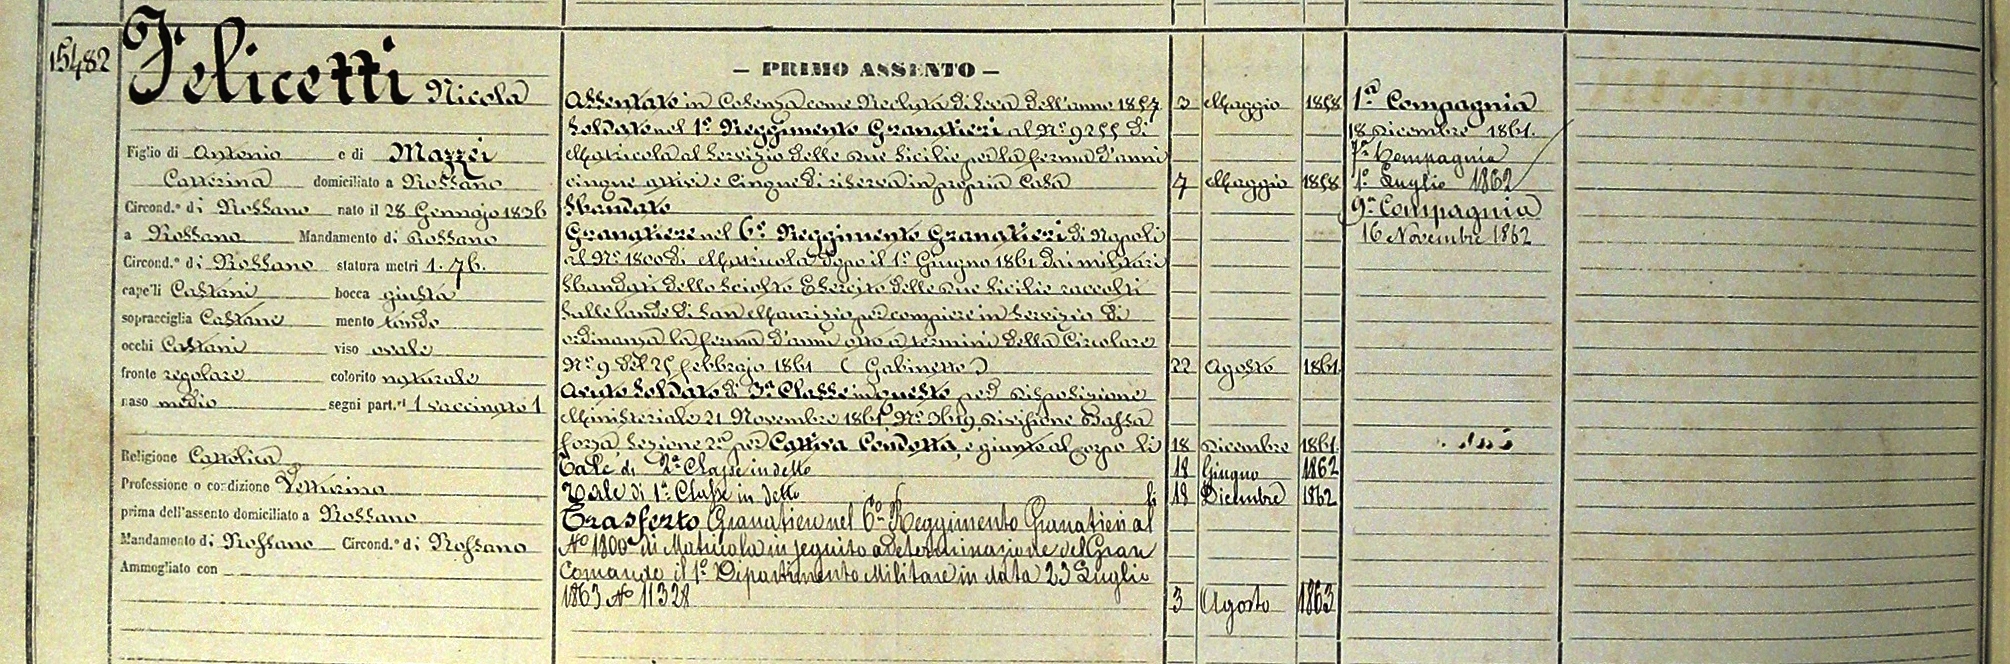 15482
Felicetti Nicola
Figlio di Antonio e di Mazzei
Catterina domiciliato a Rossano
Circond.º di Rossano nato il 28 Gennajo 1836
a Rossano Mandamento di Rossano
Circond.º di Rossano statura metri 1.76.
capelli Castani bocca giusta
sopracciglia Castane mento tondo
occhi Castani viso ovale
fronte regolare colorito naturale
naso medio segni part.ri 1 vaccinato 1
Religione Cattolica
Professione o condizione Vetturino
prima dell'assento domiciliato a Rossano
Mandamento di Rossano Circond.º di Rossano
Ammogliato con
— PRIMO ASSENTO —
Assentato in Cosenza come Recluta di Leva dell'anno 1857 3 Maggio 1858
Soldato nel 1º Reggimento Granatieri al Nº 9255 di
Matricola al Servizio delle Due Sicilie per la ferma d'anni
cinque attivi e Cinque di riserva in propria Casa 7 Maggio 1858
Sbandato
Granatiere nel 6º Reggimento Granatieri di Napoli
al Nº 1800 di Matricola dopo il 1º Giugno 1861 dai militari
Sbandati dello Sciolto Esercito delle Due Sicilie raccolti
Sulle lande di San Maurizio per compiere in Servizio di
ordinanza la ferma d'anni otto a termini della Circolare
Nº 9 del 25 Febbrajo 1861 (Gabinetto) 22 Agosto 1861.
Avuto Soldato di 3ª Classe in questo per Disposizione
Ministeriale 21 Novembre 1861 Nº 3619, Divisione Bassa
forza, Sezione 2ª per Cattiva Condotta, e giunto al Corpo li 18 Dicembre 1861.
Tale di 2ª Classe in detto 18 Giugno 1862
Tale di 1ª Classe in detto li 18 Dicembre 1862
Trasferto Granatiere nel 6º Reggimento Granatieri al
Nº 1800 di Matricola in seguito a determinazione del Gran
Comando il 1º Dipartimento Militare in data 23 Luglio
1863 Nº 11328 3 Agosto 1863
1ª Compagnia
18 Dicembre 1861.
7ª Compagnia
1º Luglio 1862
9ª Compagnia
16 Novembre 1862